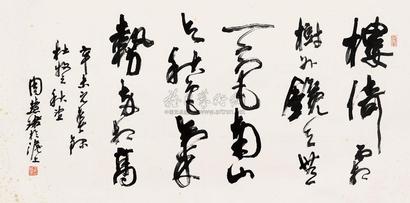 樓倚霜
樹外鏡天無
一毫南山
与秋色氣
勢兩相高
辛未 錄
杜牧 秋望
周慧珺於滬上